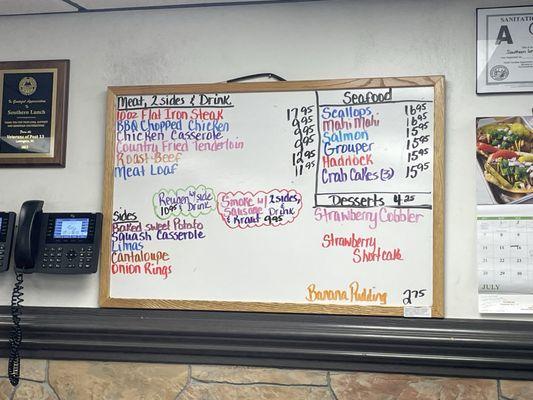 Meat, 2 sides & Drink
10oz Flat Iron Steak 17.95
BBQ Chopped Chicken 9.95
Chicken Casserole 9.95
Country Fried Tenderloin 9.95
Roast Beef 12.95
Meat Loaf 11.95
Seafood
Scallops 16.95
Mahi Mahi 16.95
Salmon 15.95
Grouper 15.95
Haddock 15.95
Crab Cakes (3) 15.95
Desserts 4.25
Strawberry Cobbler
Strawberry
Shortcake
Banana Pudding 2.75
Reuben w/ side
10.95 & Drink
Smoke w/ 2 sides,
Sausage & Drink
& Kraut 9.95
Sides
Baked sweet Potato
Squash Casserole
Limas
Cantaloupe
Onion Rings
Southern Lunch
SANITATION
A
JULY